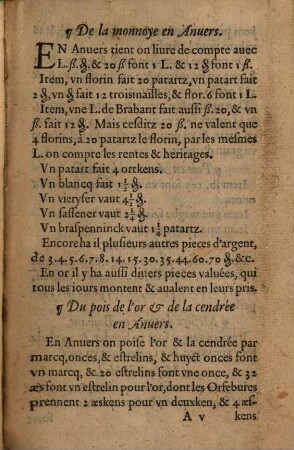 ¶ De la monnoye en Anuers.
EN Anuers tient on liure de compte auec
L. ß. ꝗ. & 20 ß font 1 L. & 12 ꝗ font 1 ß.
Item, vn florin fait 20 patartz, vn patart fait
2 ꝗ, vn ꝗ fait 12 troisnailles, & flor. 6 font 1 L.
Item, vne L. de Brabant fait aussi ß. 20, & vn
ß. fait 12 ꝗ. Mais cesditz 20 ß. ne valent que
4 florins, à 20 patartz le florin, par les mesmes
L. on compte les rentes & heritages.
Vn patart fait 4 ortkens.
Vn blancq fait 1½ ꝗ.
Vn vieryser vaut 4½ ꝗ.
Vn sassener vaut 2¼ ꝗ.
Vn braspenninck vaut 1¼ patartz.
Encore ha il plusieurs autres pieces d'argent,
de 3. 4. 5. 6. 7. 8. 14. 15. 30. 35. 44. 60. 70 ꝗ. &c.
En or il y ha aussi diuers pieces valuées, qui
tous les iours montent & aualent en leurs pris.
¶ Du pois de l'or & de la cendrée
en Anuers.
En Anuers on poise l'or & la cendrée par
marcq, onces, & estrelins, & huyct onces font
vn marcq, & 20 estrelins font vne once, & 32
æs font vn estrelin pour l'or, dont les Orfebures
prennent 2 æskens pour vn deuxken, & 4 æs-
A v kens